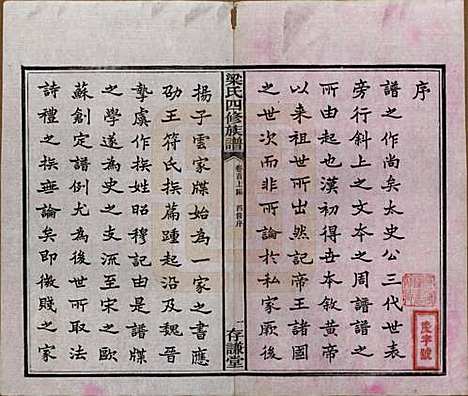 序
譜之作尚矣太史公三代世表
旁行斜上之文本之周譜譜之
所由起也漢初得世本敘黃帝
以來祖世所出然記帝王諸國
之世次非所論於私家厥後
梁氏四修族譜
卷首上編 四修序
一
存謙堂
揚子雲家牒始為一家之書應
劭王符氏族篇踵起沿及魏晉
摯虞作族姓昭穆記由是譜牒
之學遂為史之支流至宋之歐
蘇創定譜例尤為後世所取法
詩禮之族無論矣即微賤之家